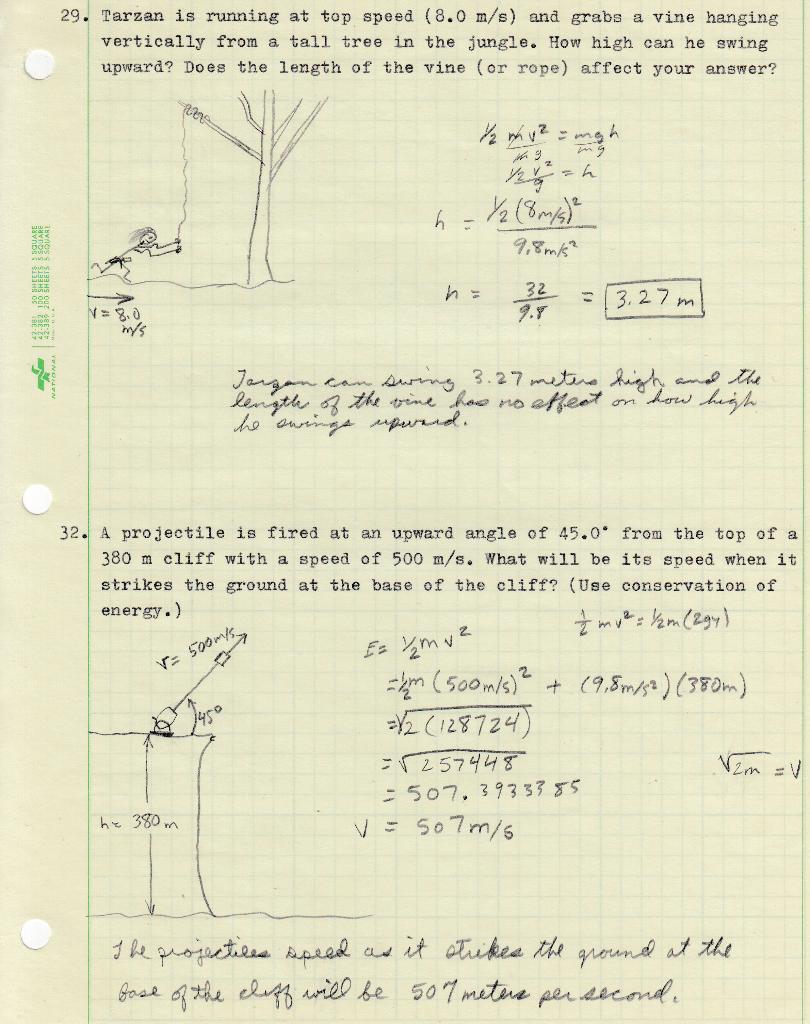 29. Tarzan is running at top speed (8.0 m/s) and grabs a vine hanging
vertically from a tall tree in the jungle. How high can he swing
upward? Does the length of the vine (or rope) affect your answer?
½ mv² = mgh
mg mg
½ v²/g = h
h = ½(8m/s)² / 9.8m/s²
h = 32/9.8 = 3.27 m
V = 8.0
m/s
42-381 50 SHEETS 5 SQUARE
42-382 100 SHEETS 5 SQUARE
42-389 200 SHEETS 5 SQUARE
NATIONAL
Tarzan can swing 3.27 meters high and the
length of the vine has no effect on how high
he swings upward.
32. A projectile is fired at an upward angle of 45.0° from the top of a
380 m cliff with a speed of 500 m/s. What will be its speed when it
strikes the ground at the base of the cliff? (Use conservation of
energy.)
½ mv² = ½m(2gy)
V = 500m/s
45°
h = 380m
E = ½mv²
= ½m (500m/s)² + (9,8m/s²)(380m)
= √2(128724)
= √257448
= 507.3933385
V = 507m/s
√2m = V
The projectiles speed as it strikes the ground at the
base of the cliff will be 507 meters per second.